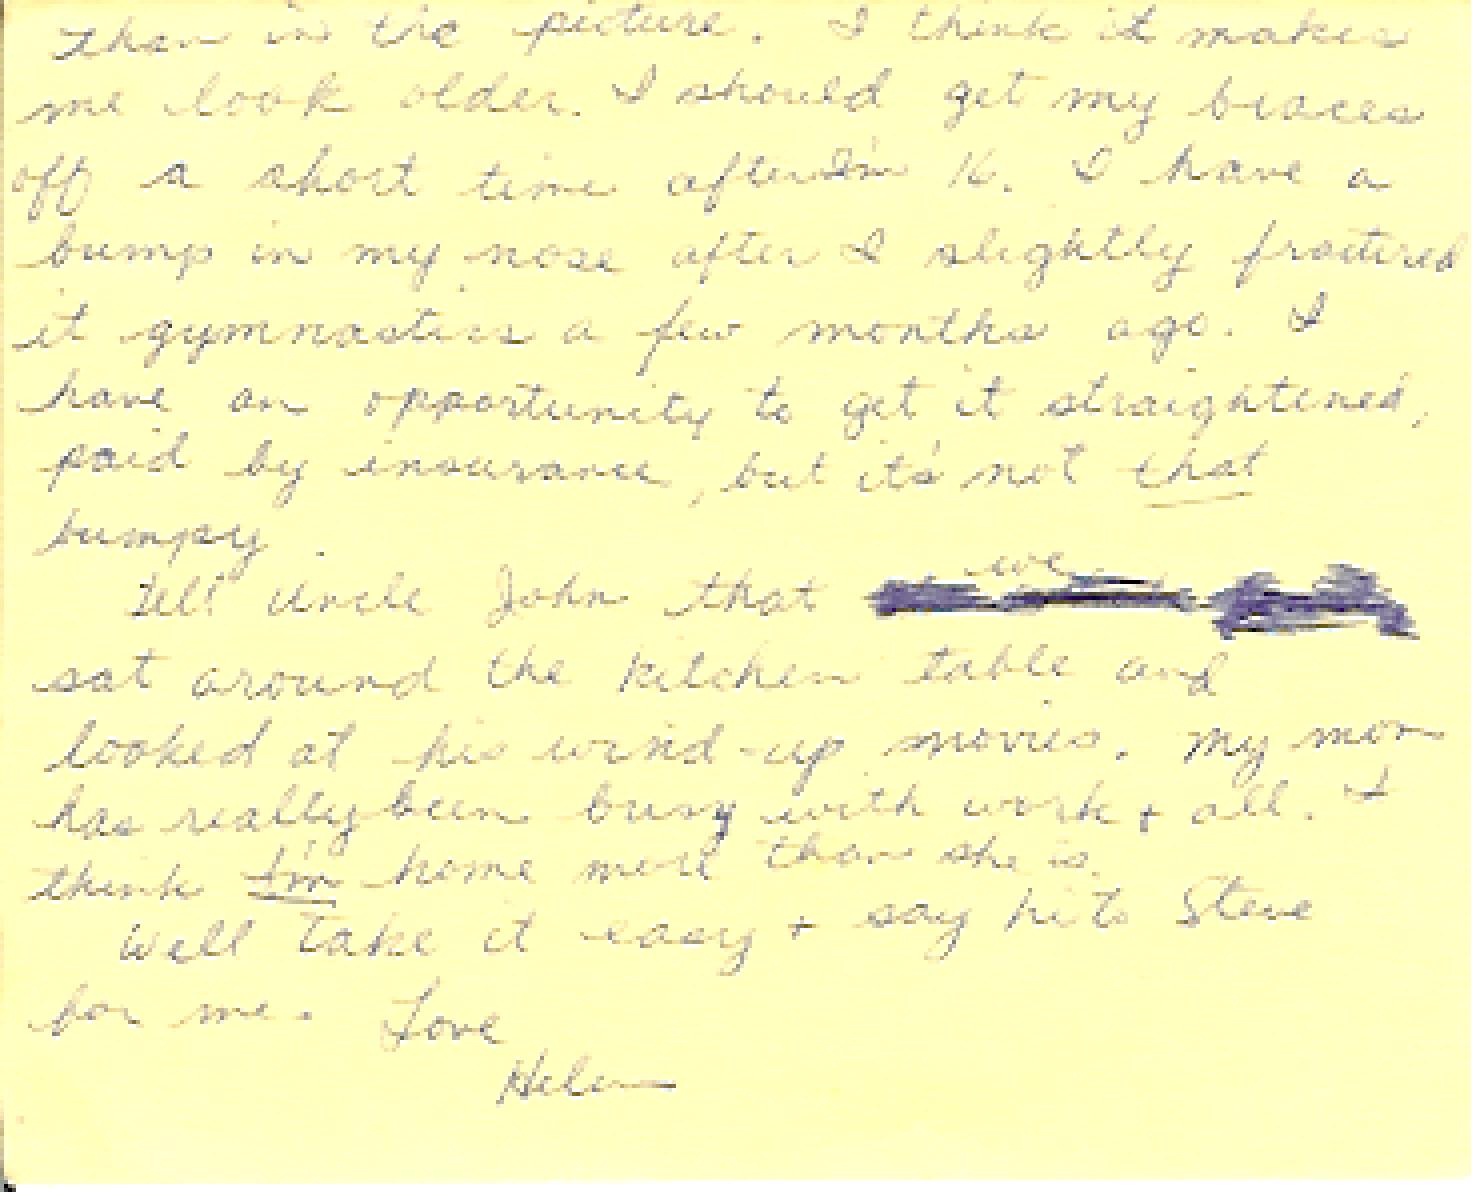 than in the picture. I think it makes
me look older. I should get my braces
off a short time after I'm 16. I have a
bump in my nose after I slightly fractured
it gymnastics a few months ago. I
have an opportunity to get it straightened,
paid by insurance, but it's not that
bumpy.
Tell Uncle John that we
sat around the kitchen table and
looked at his wind-up movies. My mom
has really been busy with work + all. I
think I'm home more than she is.
Well take it easy + say hi to Steve
for me. Love
Helen